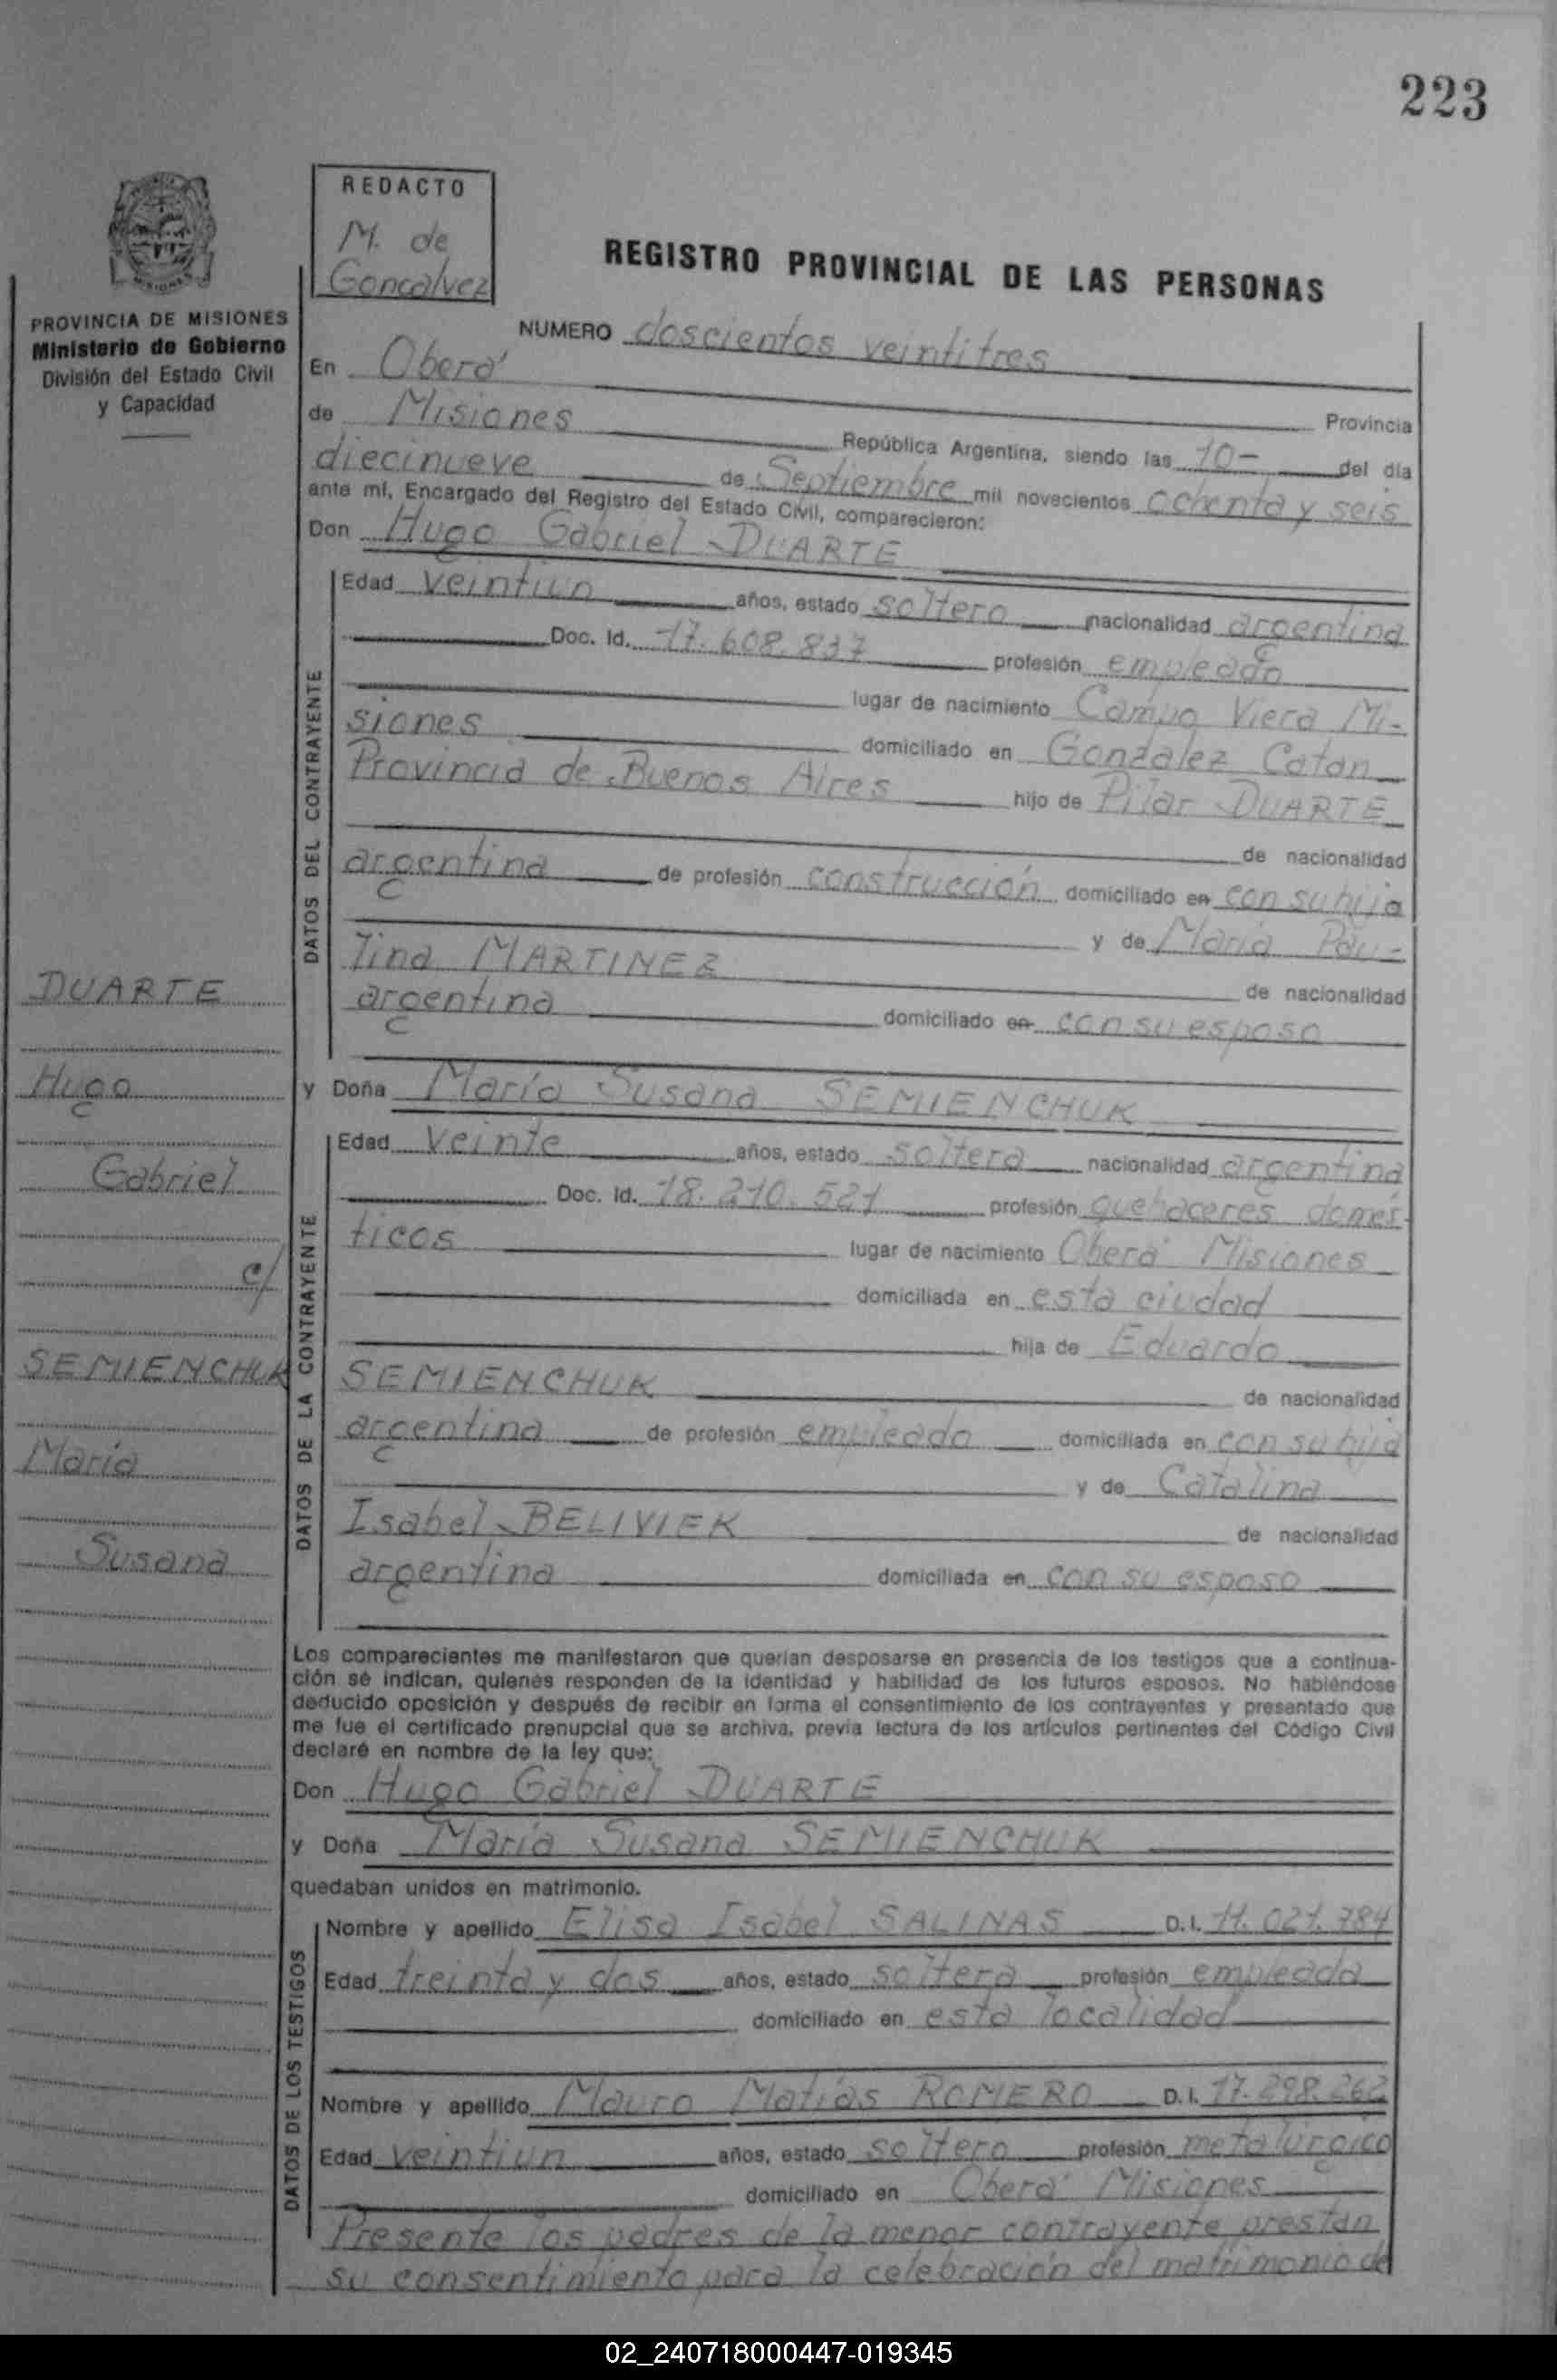 223
REDACTO
M. de
Goncalvez
REGISTRO PROVINCIAL DE LAS PERSONAS
PROVINCIA DE MISIONES
Ministerio de Gobierno
División del Estado Civil
y Capacidad
NUMERO doscientos veintitres
En Oberá
Provincia
de Misiones República Argentina, siendo las 10- del día
diecinueve de Septiembre mil novecientos ochenta y seis
ante mí, Encargado del Registro del Estado Civil, comparecieron:
Don Hugo Gabriel DUARTE
DATOS DEL CONTRAYENTE
Edad veintiun años, estado soltero nacionalidad argentina
Doc. Id. 17.608.837 profesión empleado
lugar de nacimiento Campo Viera Mi-
siones domiciliado en Gonzalez Catan
Provincia de Buenos Aires hijo de Pilar DUARTE
de nacionalidad
argentina de profesión construcción domiciliado en con su hijo
y de Maria Pau-
lina MARTINEZ de nacionalidad
argentina domiciliado en con su esposo
y Doña María Susana SEMIENCHUK
DATOS DE LA CONTRAYENTE
Edad veinte años, estado soltera nacionalidad argentina
Doc. Id. 18.210.521 profesión quehaceres domés-
ticos lugar de nacimiento Oberá Misiones
domiciliada en esta ciudad
hija de Eduardo
SEMIENCHUK de nacionalidad
argentina de profesión empleado domiciliada en con su hija
y de Catalina
Isabel BELIVIEK de nacionalidad
argentina domiciliada en con su esposo
DUARTE
Hugo
Gabriel
c/
SEMIENCHUK
María
Susana
Los comparecientes me manifestaron que querían desposarse en presencia de los testigos que a continua-
ción se indican, quienes responden de la identidad y habilidad de los futuros esposos. No habiéndose
deducido oposición y después de recibir en forma el consentimiento de los contrayentes y presentado que
me fue el certificado prenupcial que se archiva, previa lectura de los artículos pertinentes del Código Civil
declaré en nombre de la ley que:
Don Hugo Gabriel DUARTE
y Doña María Susana SEMIENCHUK
quedaban unidos en matrimonio.
DATOS DE LOS TESTIGOS
Nombre y apellido Elisa Isabel SALINAS D.I. 11.021.784
Edad treinta y dos años, estado soltera profesión empleada
domiciliado en esta localidad
Nombre y apellido Mauro Matías ROMERO D.I. 17.298.262
Edad veintiun años, estado soltero profesión metalúrgico
domiciliado en Oberá Misiones
Presente los padres de la menor contrayente prestan
su consentimiento para la celebración del matrimonio de
02_240718000447-019345